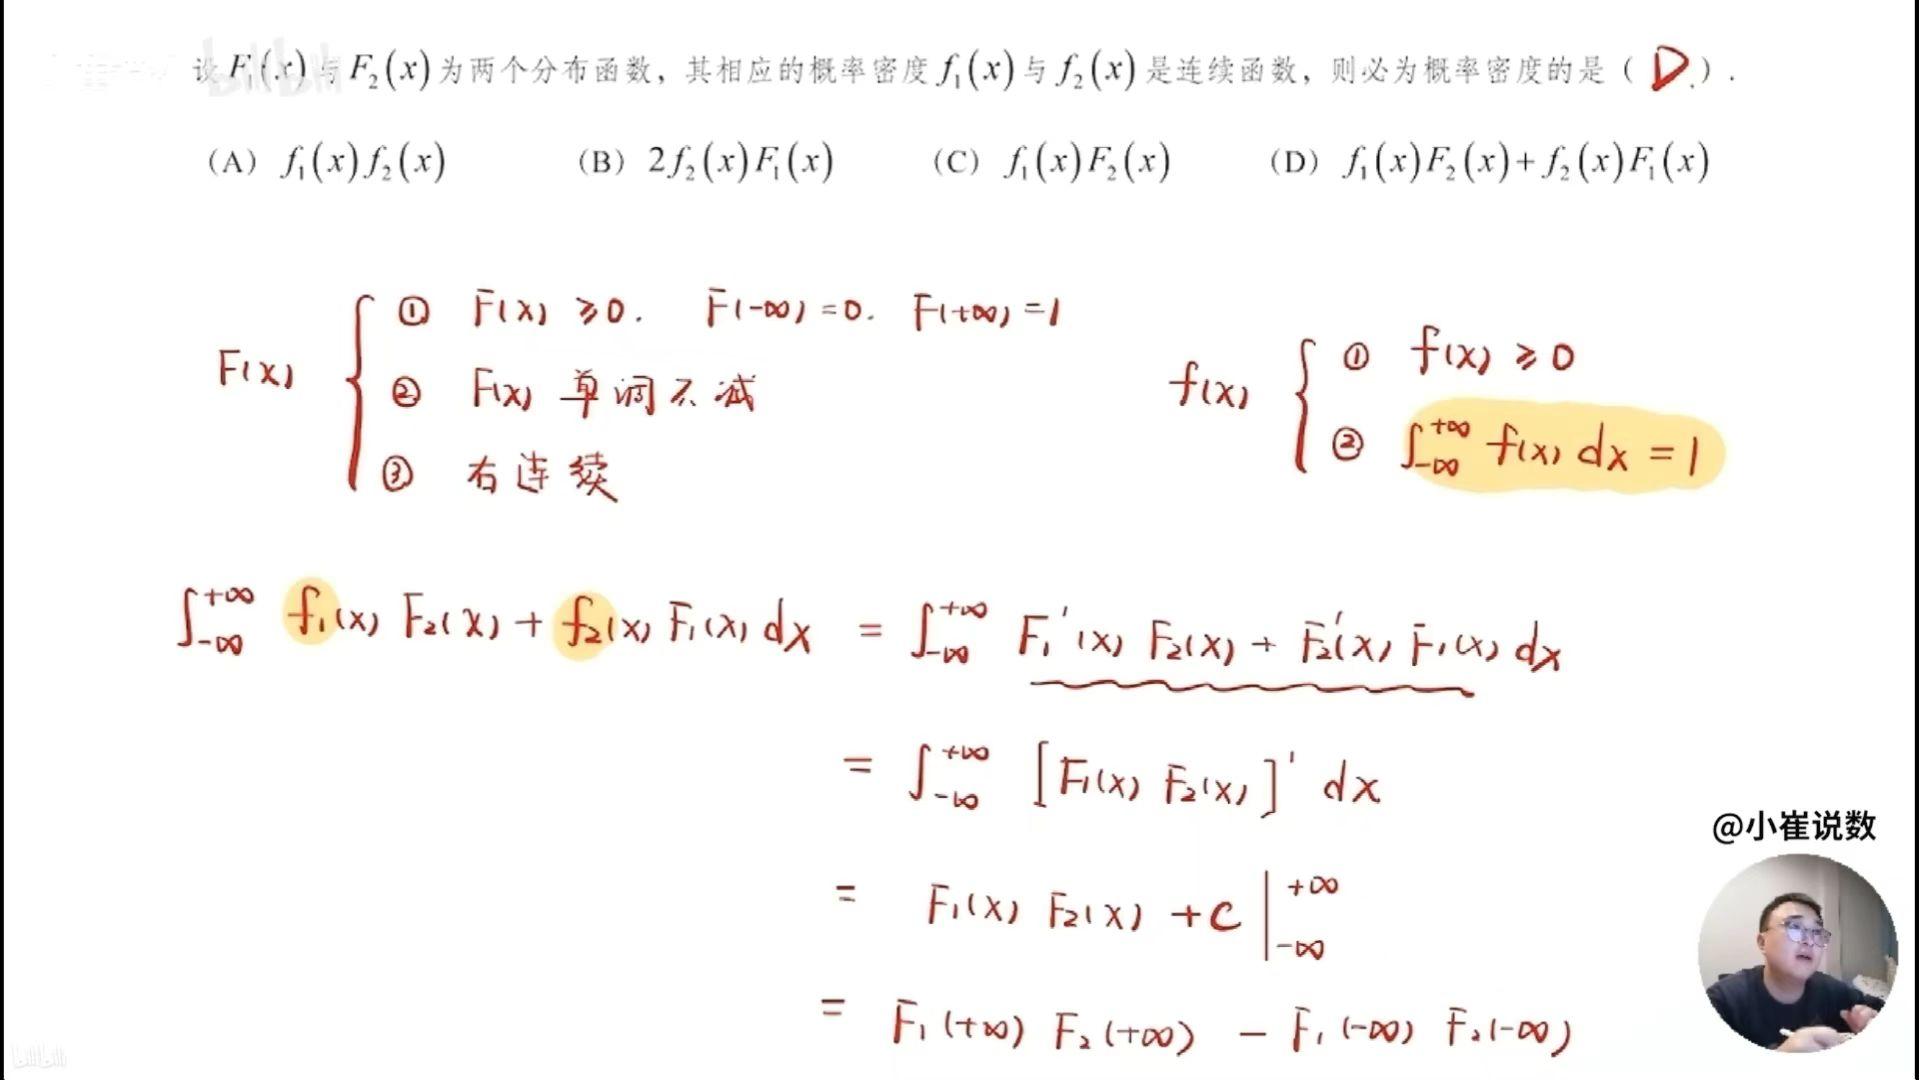 设 F₁(x) 与 F₂(x) 为两个分布函数，其相应的概率密度 f₁(x) 与 f₂(x) 是连续函数，则必为概率密度的是（ D ）.
（A） f₁(x)f₂(x) （B） 2f₂(x)F₁(x) （C） f₁(x)F₂(x) （D） f₁(x)F₂(x)+f₂(x)F₁(x)
F(x) { ① F(x) ≥0. F(-∞)=0. F(+∞)=1
② F(x) 单调不减
③ 右连续
f(x) { ① f(x) ≥ 0
② ∫_{-∞}^{+∞} f(x) dx = 1
∫_{-∞}^{+∞} f₁(x) F₂(x) + f₂(x) F₁(x) dx = ∫_{-∞}^{+∞} F₁'(x) F₂(x) + F₂'(x) F₁(x) dx
= ∫_{-∞}^{+∞} [F₁(x) F₂(x)]' dx
@小崔说数
= F₁(x) F₂(x) + C |_{-∞}^{+∞}
= F₁(+∞) F₂(+∞) - F₁(-∞) F₂(-∞)
bilibili